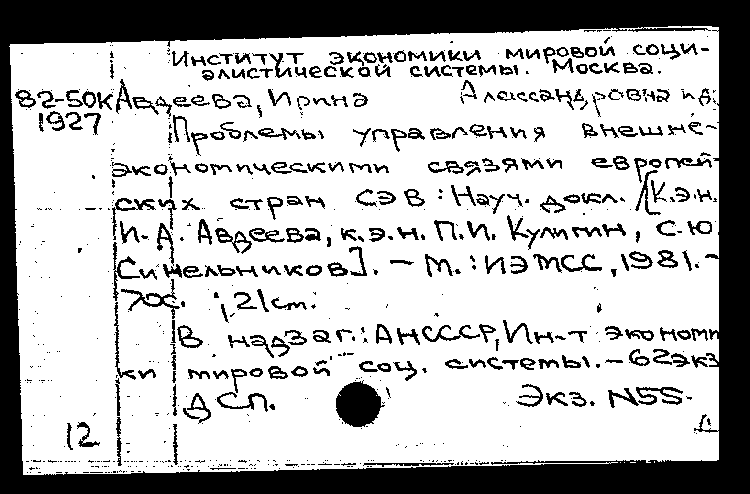 Институт экономики мировой соци-
алистической системы. Москва.
82-50К Авдеева, Ирина Александровна и др.
1927
Проблемы управления внешне-
экономическими связями европей-
ских стран СЭВ: Науч. докл. /[К.э.н.
И.А. Авдеева, к.э.н. П.И. Кулигин, С.Ю.
Синельников]. - М.: ИЭМСС, 1981. -
70с. ; 21 cm.
В надзаг.: АН СССР, Ин-т экономи
ки мировой соц. системы. - 62 экз
ДСП. Экз. N55.
12